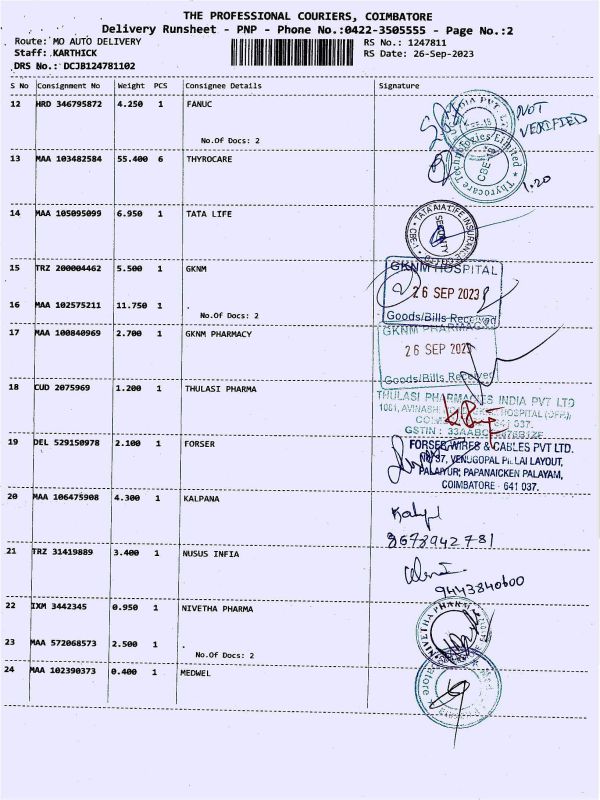 THE PROFESSIONAL COURIERS, COIMBATORE
Delivery Runsheet - PNP - Phone No.:0422-3505555 - Page No.:2
Route: MO AUTO DELIVERY RS No.: 1247811
Staff: KARTHICK RS Date: 26-Sep-2023
DRS No.: DCJB124781102
S No Consignment No Weight PCS Consignee Details Signature
12 HRD 346795872 4.250 1 FANUC
NOT
VERIFIED
No.Of Docs: 2
13 MAA 103482584 55.400 6 THYROCARE
Thyrocare Technologies Limited
CBE
1.20
14 MAA 105095099 6.950 1 TATA LIFE
TATA AIA LIFE INSURANCE
SECURITY
CBE-1
15 TRZ 200004462 5.500 1 GKNM
GKNM HOSPITAL
26 SEP 2023
16 MAA 102575211 11.750 1
No.Of Docs: 2
Goods/Bills Received
17 MAA 100840969 2.700 1 GKNM PHARMACY
GKNM PHARMACY
26 SEP 2023
Goods/Bills Received
18 CUD 2075969 1.200 1 THULASI PHARMA
THULASI PHARMACIES INDIA PVT LTD
1081, AVINASHI HOSPITAL (OPP),
641 037.
GSTIN :
19 DEL 529150978 2.100 1 FORSER
FORSER WIRES & CABLES PVT LTD.
VENUGOPAL PILLAI LAYOUT,
PALAIYUR, PAPANAICKEN PALAYAM,
COIMBATORE - 641 037.
20 MAA 106475908 4.300 1 KALPANA
8678942781
21 TRZ 31419889 3.400 1 NUSUS INFIA
9443840600
22 IXM 3442345 0.950 1 NIVETHA PHARMA
NIVETHA PHARMA
23 MAA 572068573 2.500 1 .
No.Of Docs: 2
24 MAA 102390373 0.400 1 MEDWEL